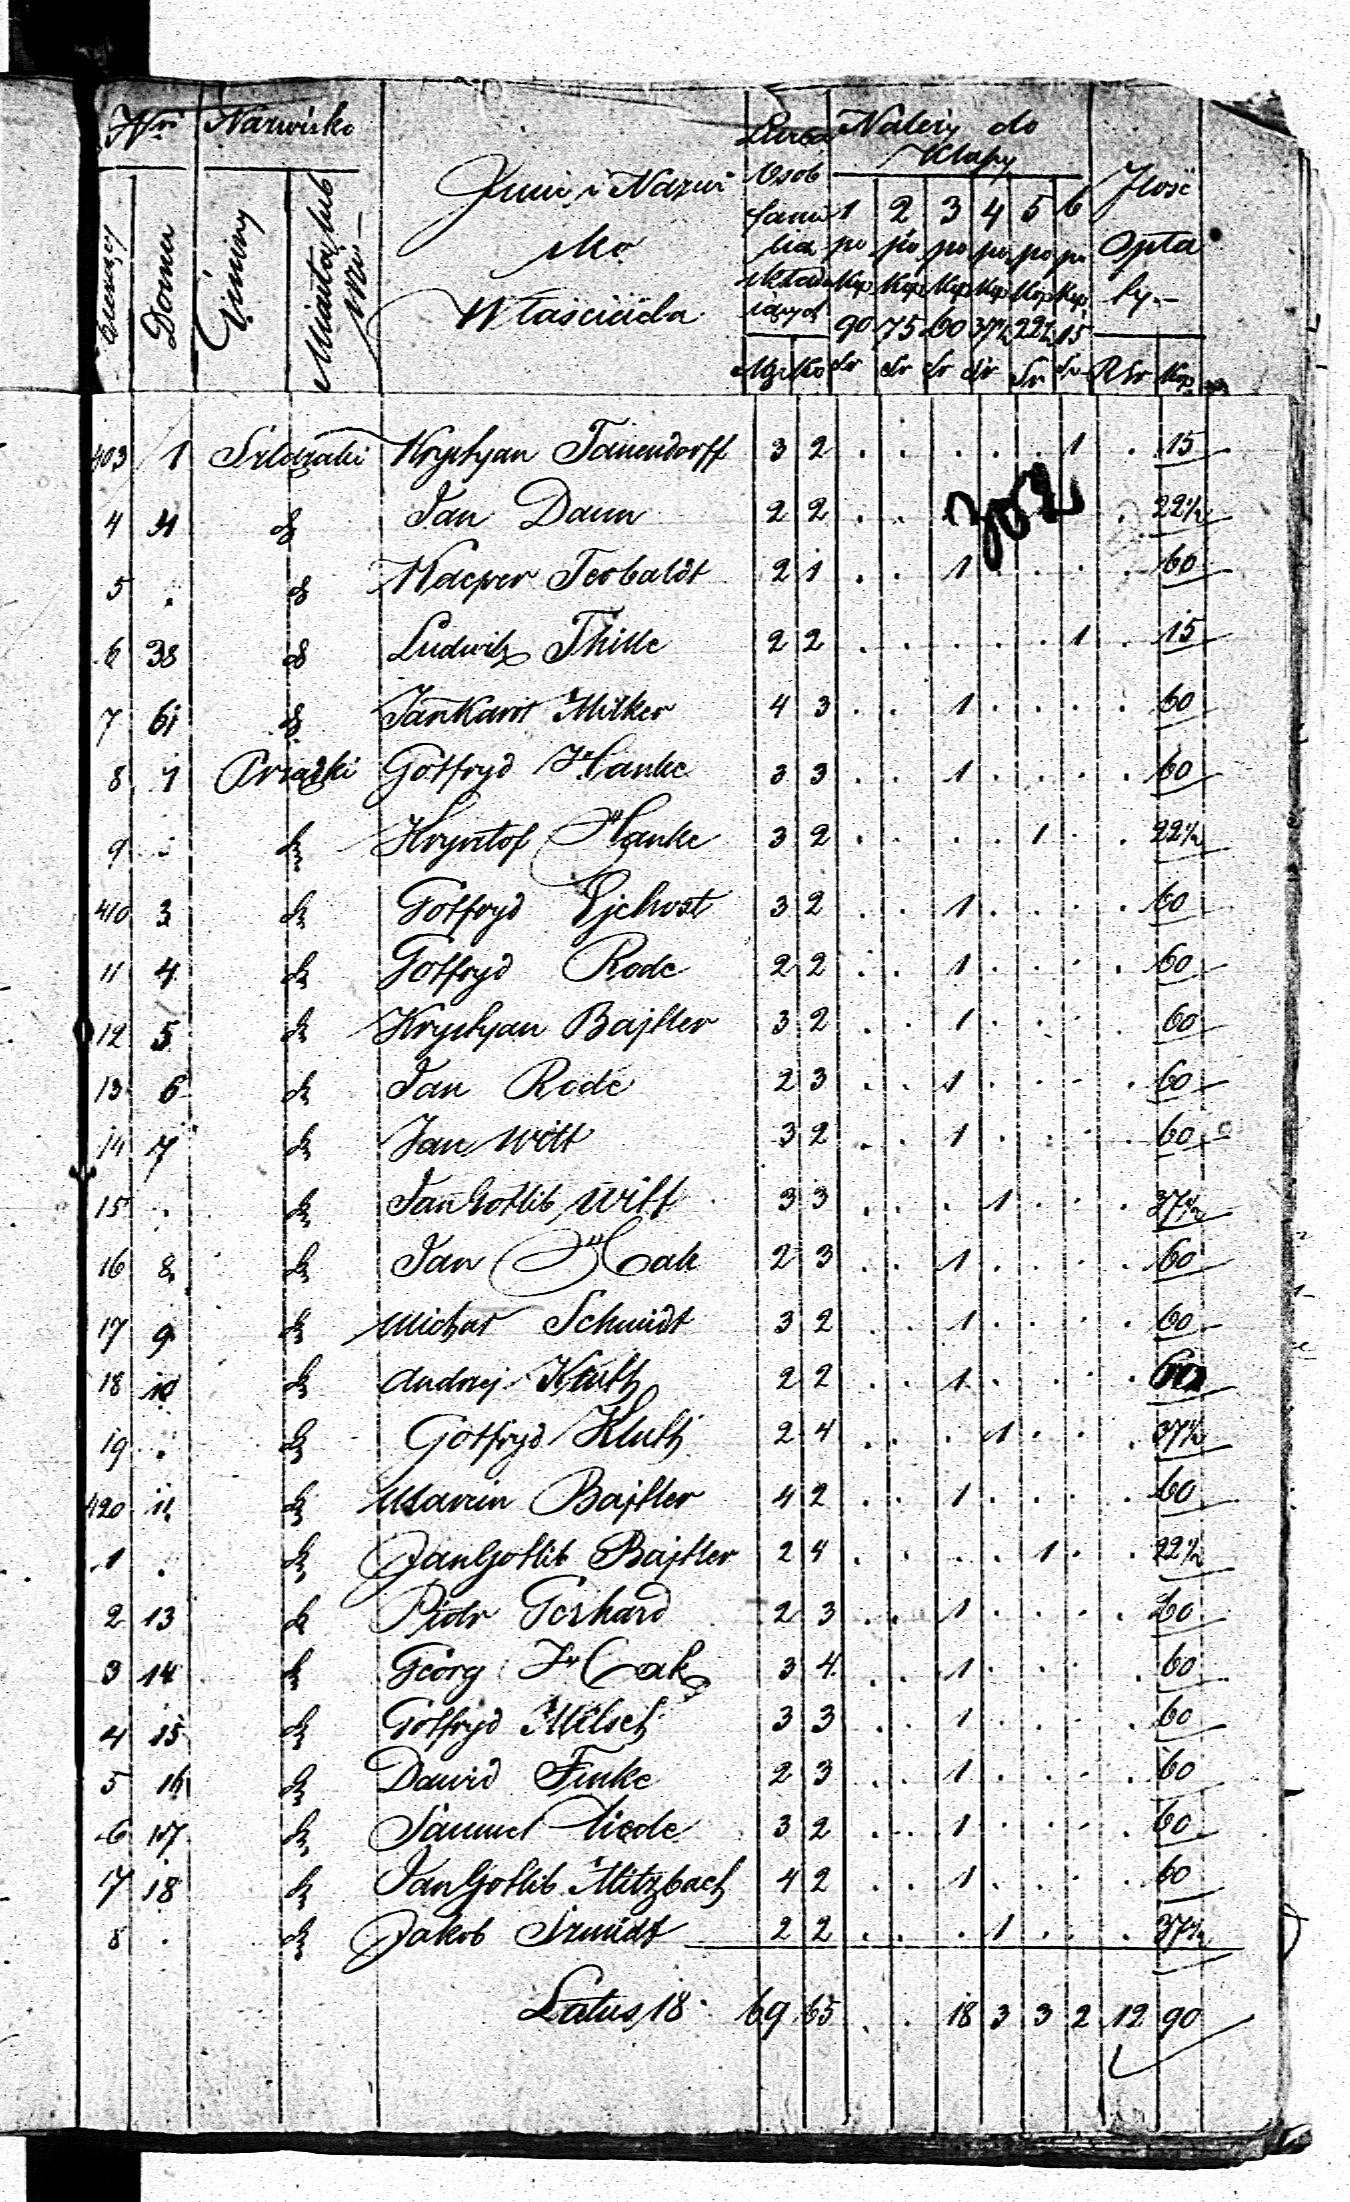 Nr Nazwisko
Bieżący Domu Gminy Miasta lub wsi
Imie i Nazwi
sko
Właściciela
Liczba Osob famil lia składa iących
Męz Ko
Należy do
Klassy
1 2 3 4 5 6
po po po po po po
Kop Kop Kop Kop Kop Kop
90 75 60 37½ 22½ 15
Sr Sr Sr Sr Sr Sr
Ilość
opła
ty.-
RSr Kop
403 1 Szlązaki Krystyan Tanendorff 3 2 . . . . . 1 . 15
4 4 d Jan Daun 2 2 . . 302 . 22½
5 . d Kacper Teobaldt 2 1 . . 1 . . . . 60
6 38 d Ludwik Thille 2 2 . . . . . 1 . 15
7 61 d Jan Karol Milker 4 3 . . 1 . . . . 60
8 1 Prząśki Gotfryd Hanke 3 3 . . 1 . . . . 60
9 . d Krysztof Hanke 3 2 . . . . 1 . . 22½
410 3 d Gotfryd Ejchost 3 2 . . 1 . . . . 60
11 4 d Gotfryd Rode 2 2 . . 1 . . . . 60
12 5 d Krystyan Bajtler 3 2 . . 1 . . . . 60
13 6 d Jan Rode 2 3 . . 1 . . . . 60
14 7 d Jan Witt 3 2 . . 1 . . . . 60
15 . d Jan Gotlib Witt 3 3 . . . 1 . . . 37½
16 8 d Jan Hak 2 3 . . 1 . . . . 60
17 9 d Michał Schmidt 3 2 . . 1 . . . . 60
18 10 d Andrzej Kluth 2 2 . . 1 . . . . 60
19 . d Gotfryd Kluth 2 4 . . . 1 . . . 37½
420 11 d Marcin Bajtler 4 2 . . 1 . . . . 60
1 . d Jan Gotlib Bajtler 2 4 . . . . 1 . . 22½
2 13 d Piotr Gerhard 2 3 . . 1 . . . . 60
3 14 d Georg Hak 3 4 . . 1 . . . . 60
4 15 d Gotfryd Milsch 3 3 . . 1 . . . . 60
5 16 d Dawid Finke 2 3 . . 1 . . . . 60
6 17 d Samuel 3 2 . . 1 . . . . 60
7 18 d Jan Gotlib Mitzbach 4 2 . . 1 . . . . 60
8 . d Jakob Szmidt 2 2 . . . 1 . . . 37½
Latus 18 69 65 . . 18 3 3 2 12 90